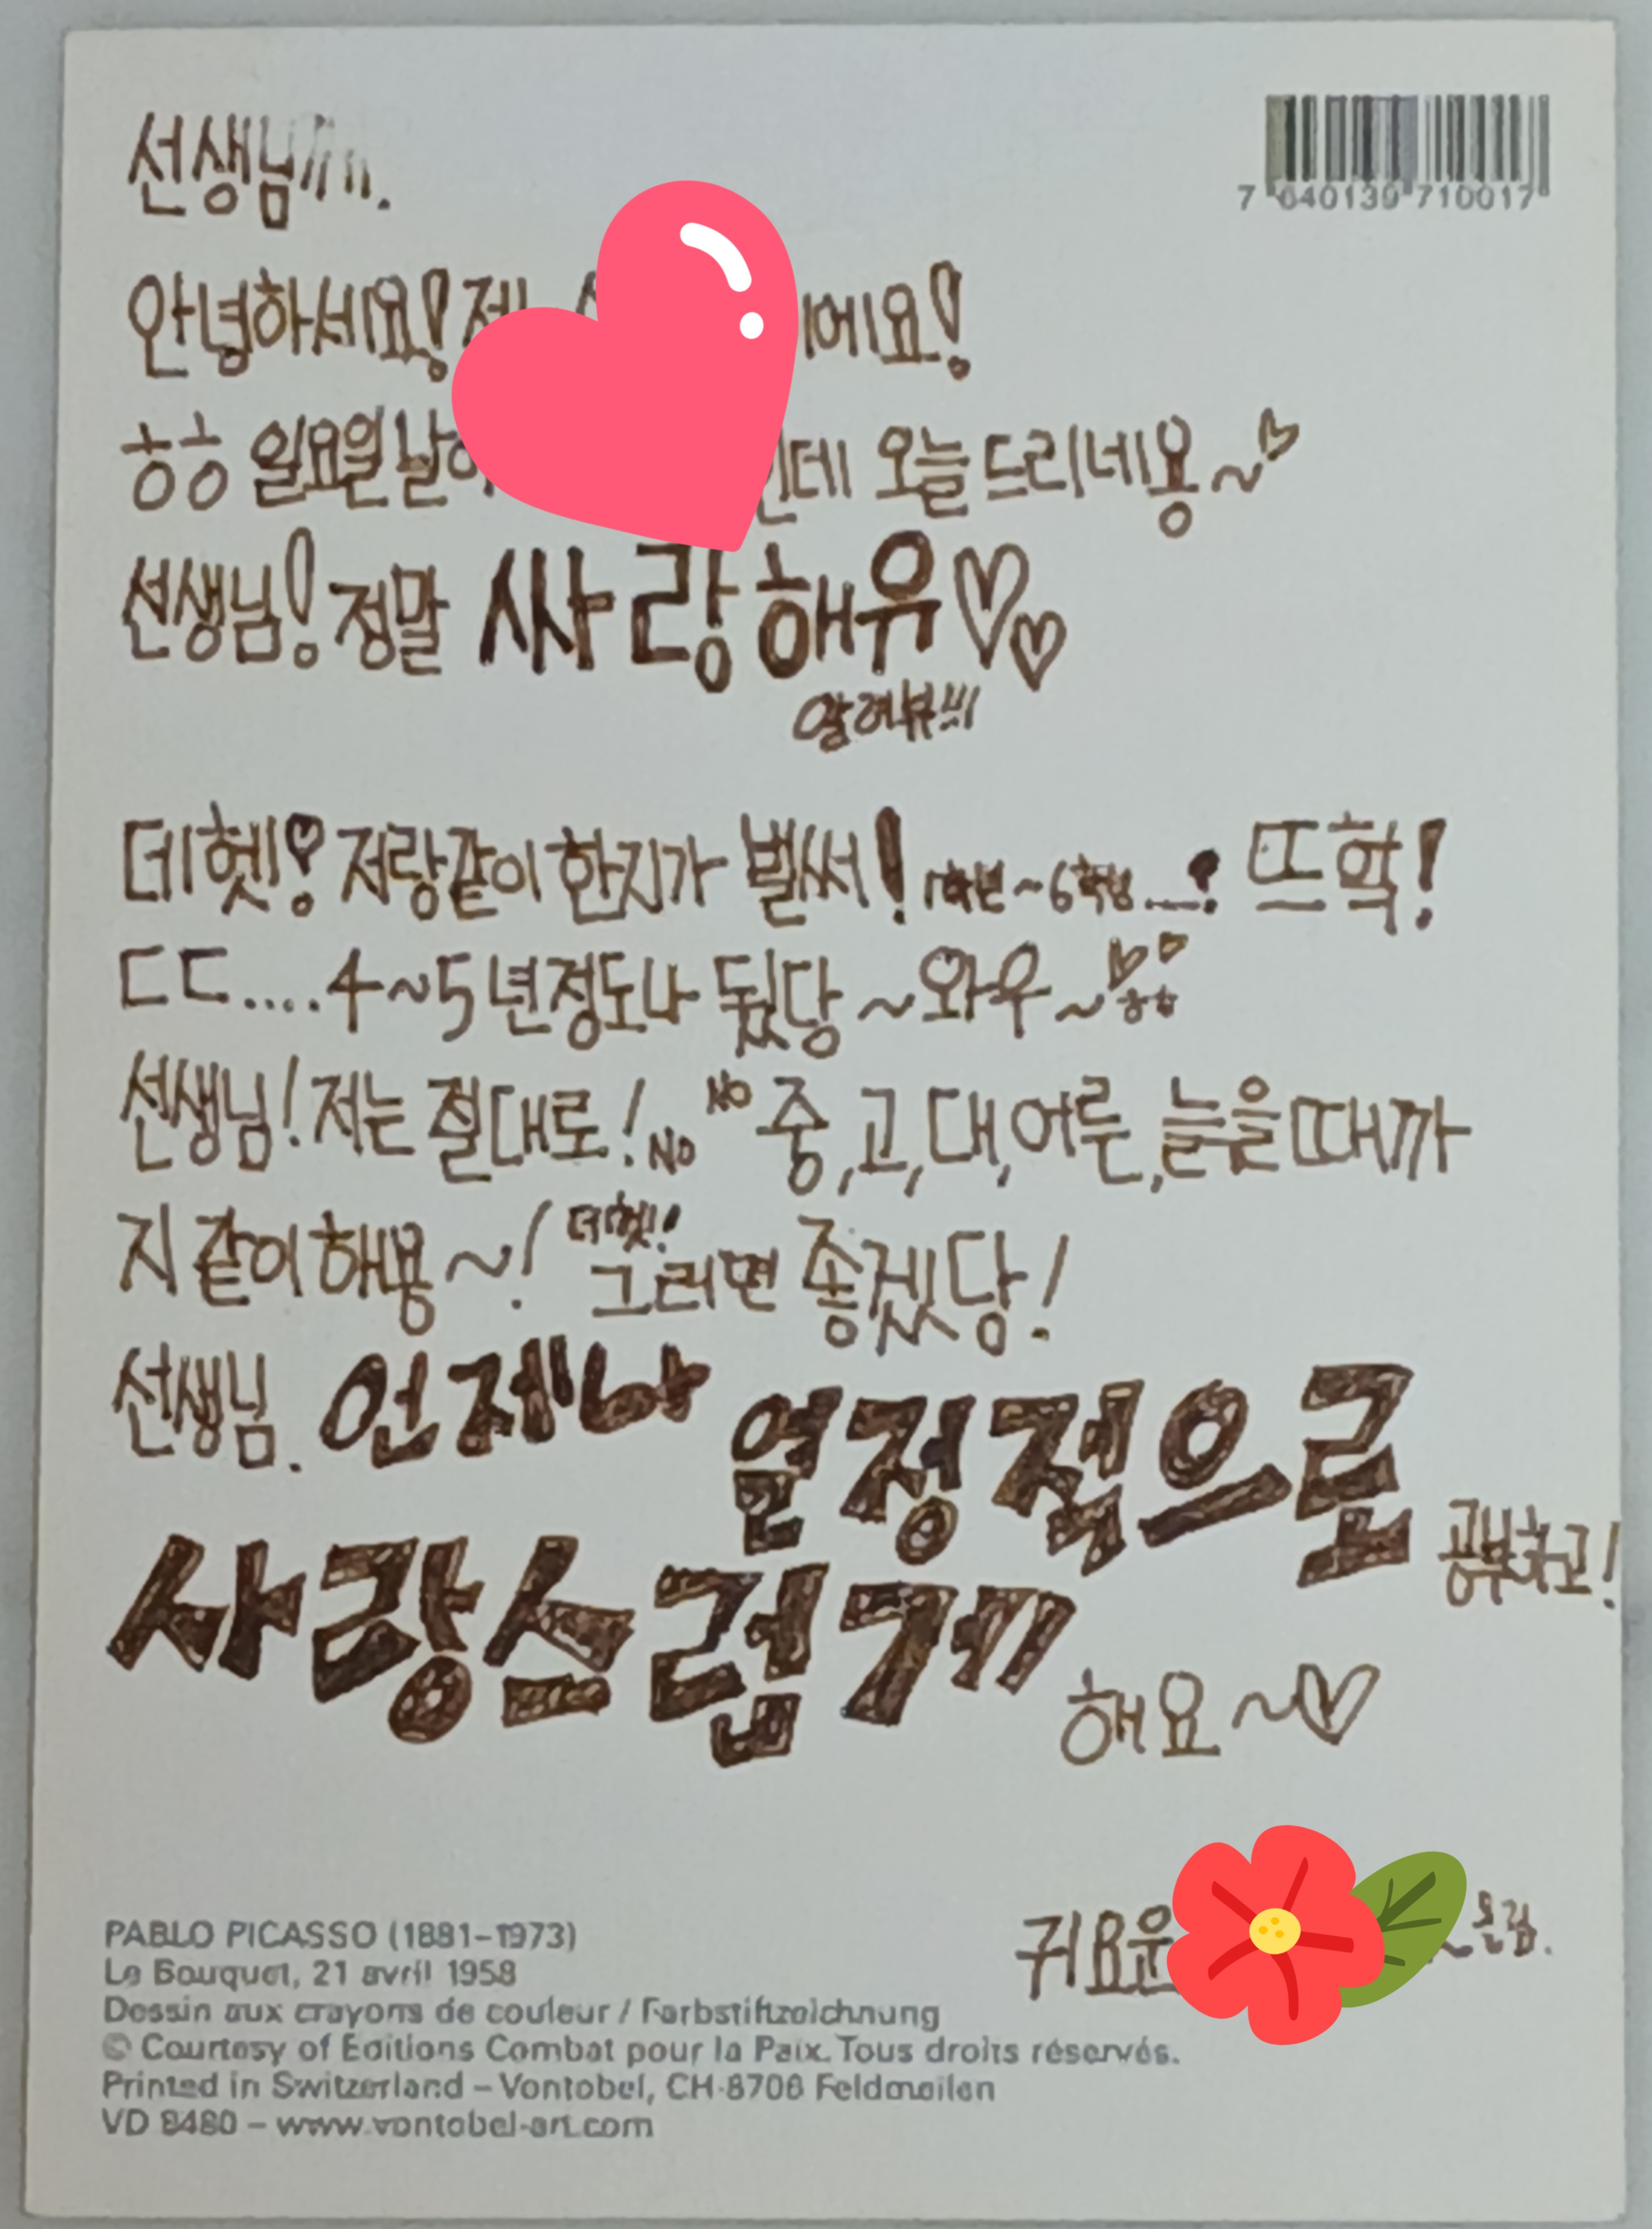 선생님
7 640139 710017
안녕하세요! 이에요!
ㅎㅎ 일요일 날 데 오늘 드리네용~♡
선생님! 정말 싸랑해유♡♡
알려뷰!!!
데헷! 저랑 같이 한지가 벌써! 1학년~6학년....? 뜨헉!
ㄷㄷ....4~5년정도나 됬당~와우~♡♡ ㅎㅎ
선생님! 저는 절대로! NO NO 중,고,대,어른,늙을때까
지 같이해용~! 데헷! 그러면 좋겠당!
선생님. 언제나 열정적으로 공부하고!
사랑스럽게 해요~♡
귀요운 올림.
PABLO PICASSO (1881–1973)
Le Bouquet, 21 avril 1958
Dessin aux crayons de couleur / Farbstiftzeichnung
© Courtesy of Editions Combat pour la Paix. Tous droits réservés.
Printed in Switzerland – Vontobel, CH-8706 Feldmeilen
VD 9480 – www.vontobel-art.com